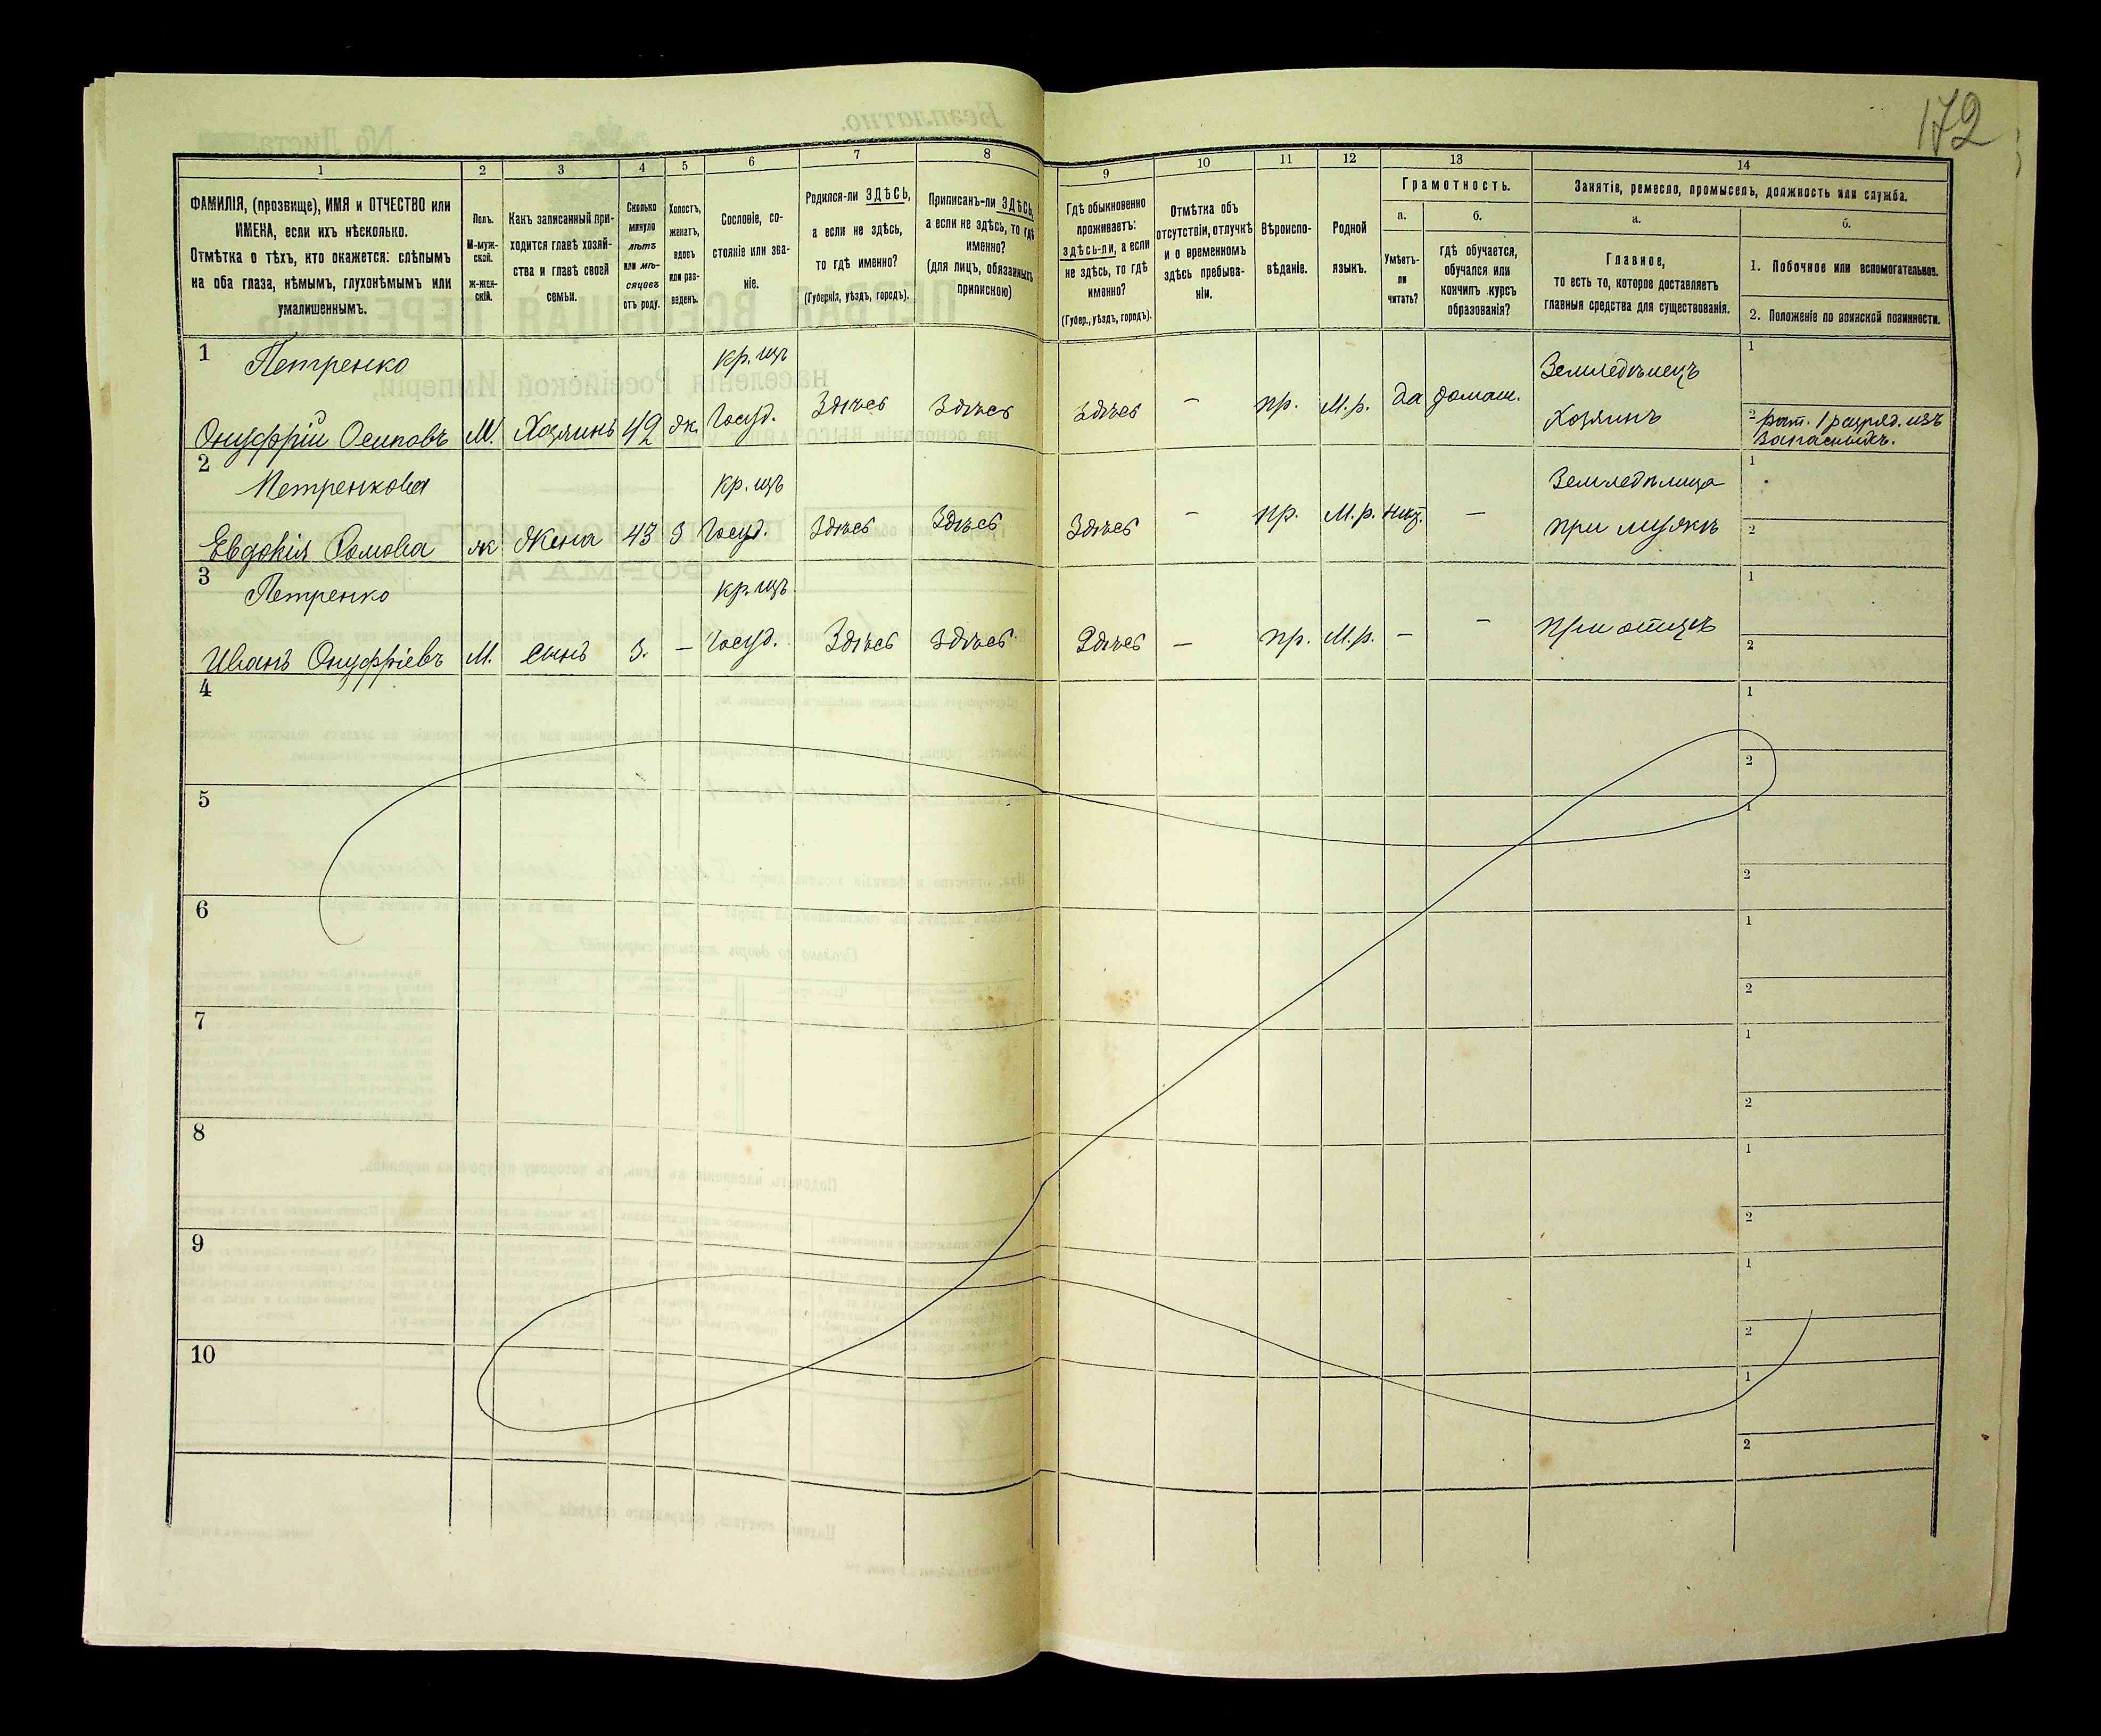 172
1
2
3
4
5
6
7
8
9
10
11
12
13
14
ФАМИЛІЯ, (прозвище), ИМЯ и ОТЧЕСТВО или
ИМЕНА, если ихъ нѣсколько.
Отмѣтка о тѣхъ, кто окажется: слѣпымъ
на оба глаза, нѣмымъ, глухонѣмымъ или
умалишеннымъ.
Полъ.
М-муж-
ской.
ж-жен-
скій.
Какъ записанный при-
ходится главѣ хозяй-
ства и главѣ своей
семьи.
Сколько
минуло
лѣтъ
или мѣ-
сяцевъ
отъ роду.
Холостъ,
женатъ,
вдовъ
или раз-
веденъ.
Сословіе, со-
стояніе или зва-
ніе.
Родился-ли ЗДѢСЬ,
а если не здѣсь,
то гдѣ именно?
(Губернія, уѣздъ, городъ).
Приписанъ-ли ЗДѢСЬ,
а если не здѣсь, то гдѣ
именно?
(для лицъ, обязанныхъ
припискою)
Гдѣ обыкновенно
проживаетъ:
здѣсь-ли, а если
не здѣсь, то гдѣ
именно?
(Губер., уѣздъ, городъ).
Отмѣтка объ
отсутствіи, отлучкѣ
и о временномъ
здѣсь пребыва-
ніи.
Вѣроиспо-
вѣданіе.
Родной
языкъ.
Грамотность.
а.
Умѣетъ-
ли
читать?
б.
гдѣ обучается,
обучался или
кончилъ курсъ
образованія?
Занятіе, ремесло, промыселъ, должность или служба.
а.
Главное,
то есть то, которое доставляетъ
главныя средства для существованія.
б.
1. Побочное или вспомогательное.
2. Положеніе по воинской повинности.
1 Петренко
Онуфрій Осиповъ М. Хозяинъ 42 ж.
кр. изъ
Госуд. Здѣсь Здѣсь Здѣсь — пр. М.р. да домаш.
Земледѣлецъ
Хозяинъ
1
2 рат. 1 разряд. изъ
запасныхъ.
2 Петренкова
Евдокія Ѳомова ж Жена 43 З
кр. изъ
Госуд. Здѣсь Здѣсь Здѣсь — пр. М.р. —
Земледѣлица
при мужѣ
1
2
3 Петренко
Иванъ Онуфріевъ М. сынъ 3. —
кр. изъ
Госуд. Здѣсь Здѣсь Здѣсь — пр. М.р. — —
при отцѣ
1
2
4
1
2
5
1
2
6
1
2
7
1
2
8
1
2
9
1
2
10
1
2